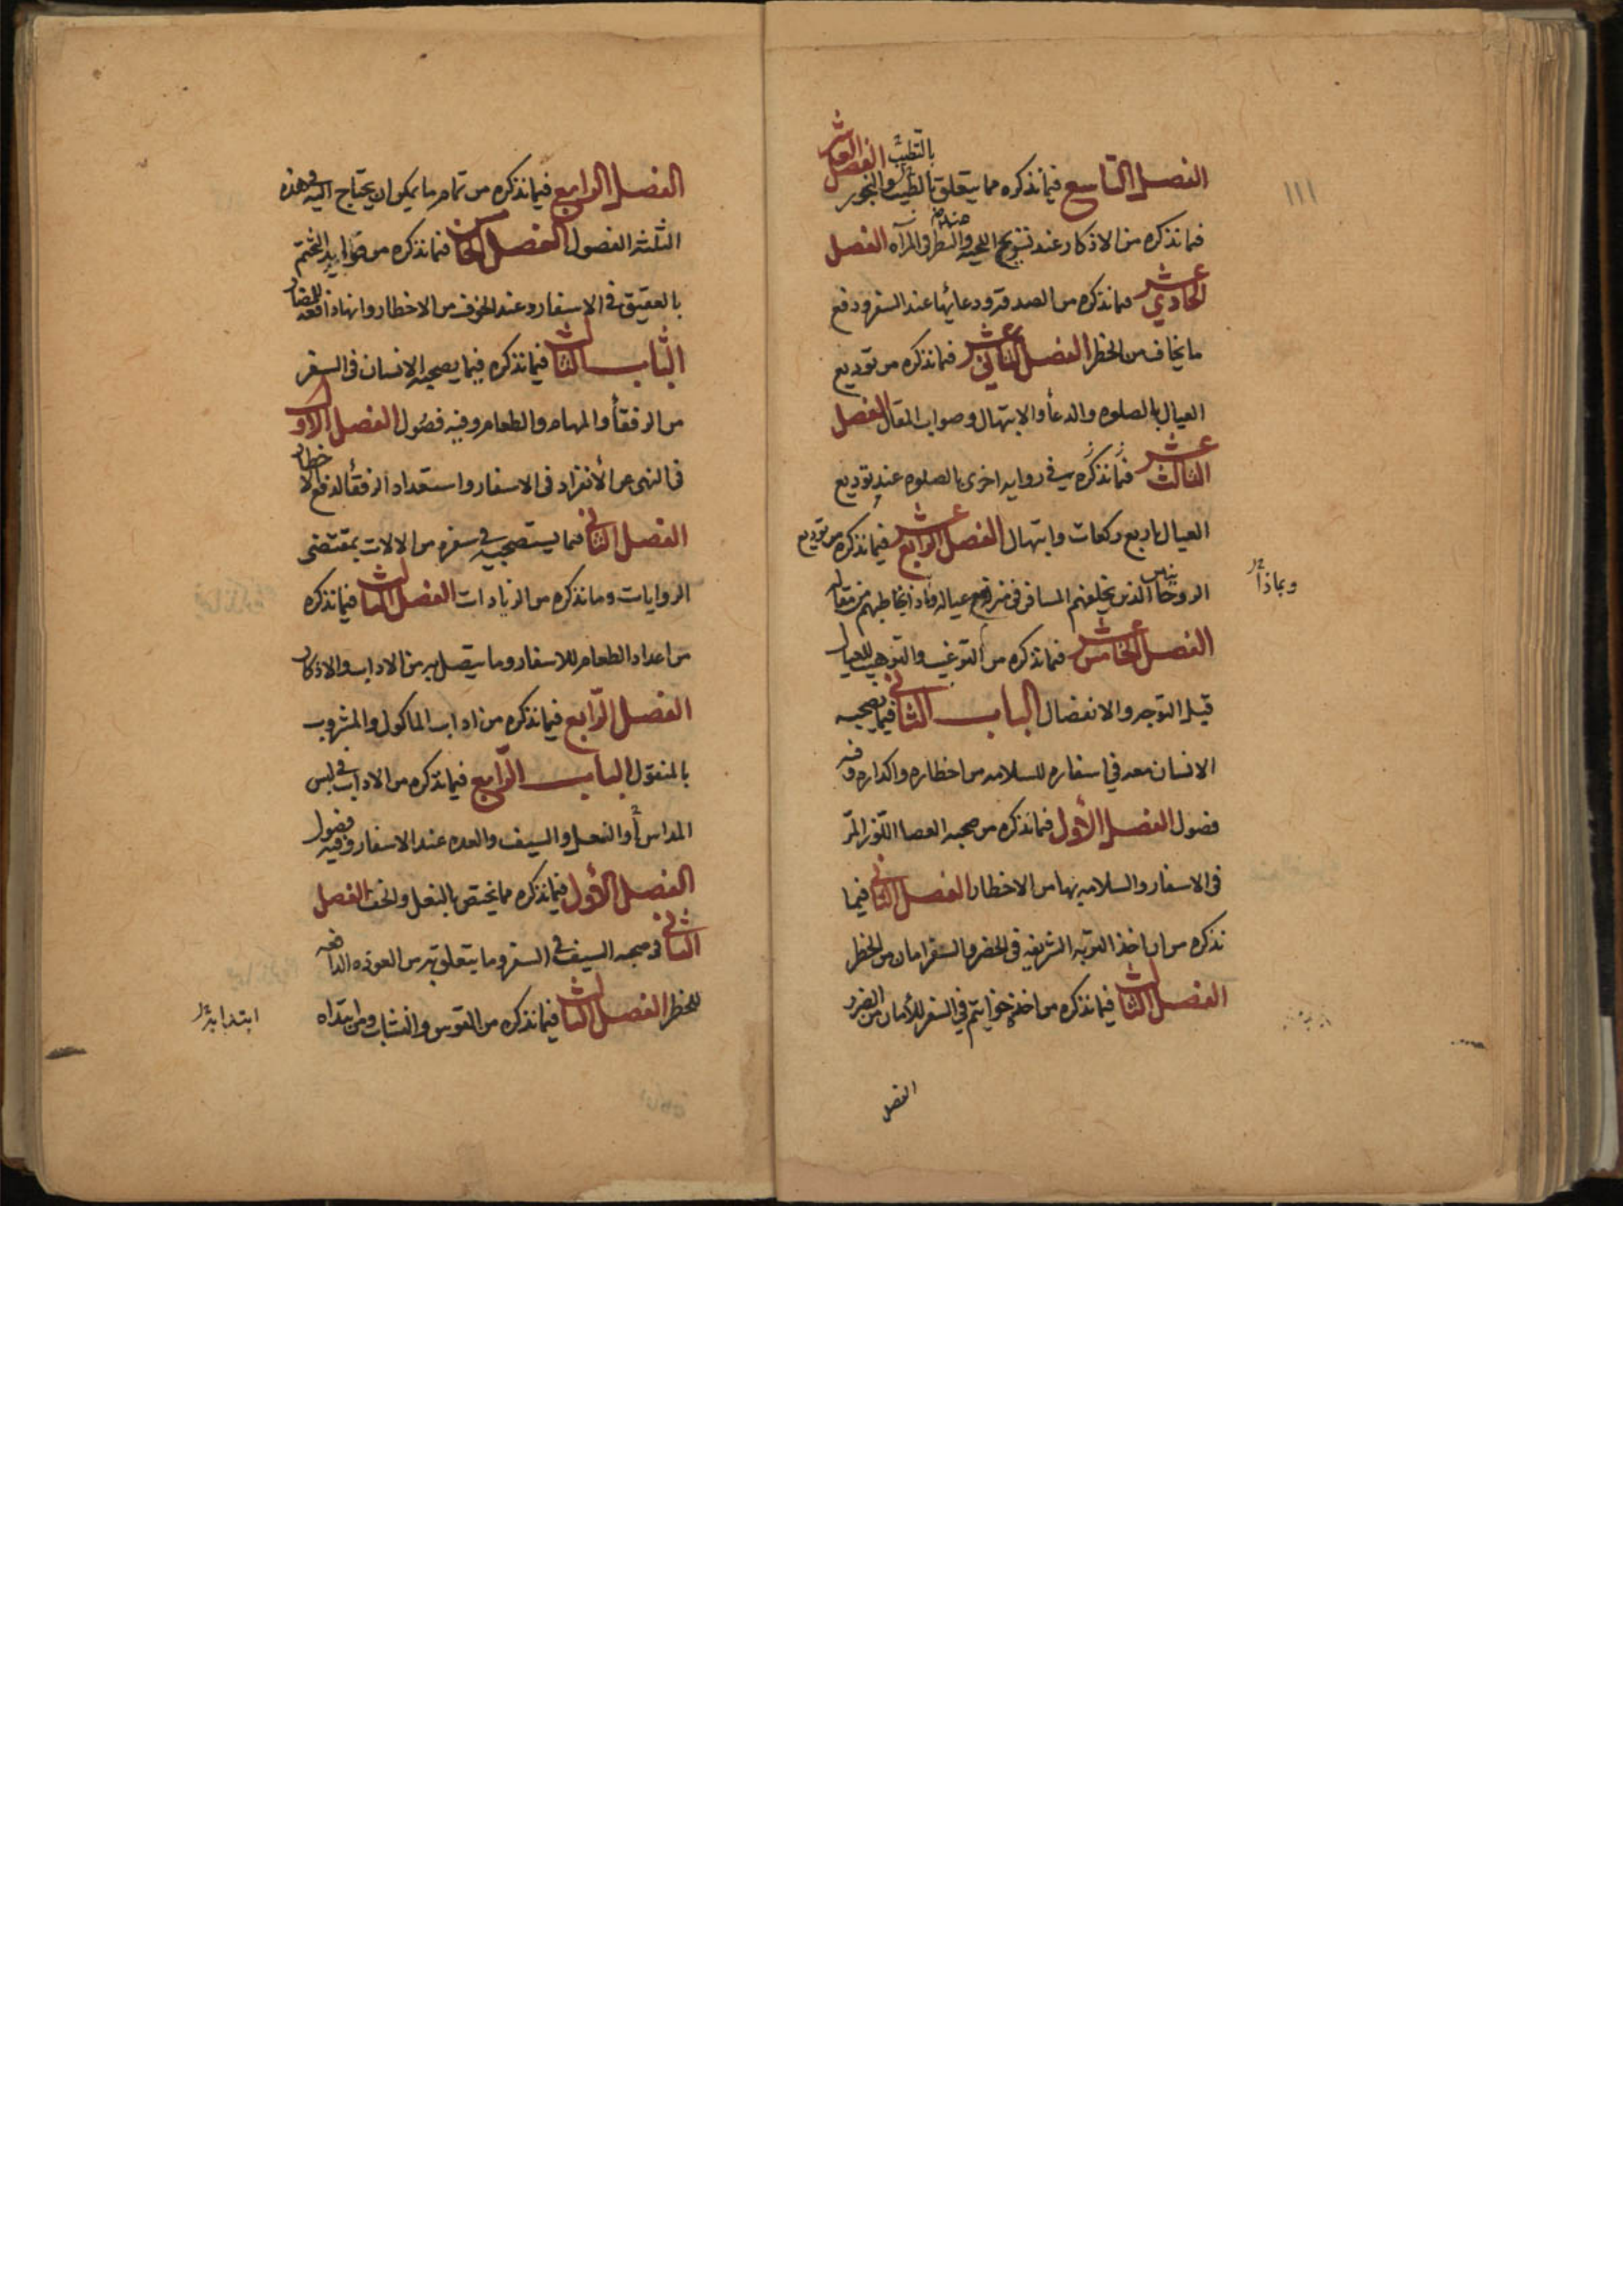 ١١١
الفصل التاسع فيما نذكره مما يتعلق بالطيب والبخور الفصل العاشر
بالتطيب
فيما نذكره من الاذكار عند تسريح اللحيه والنظر فى المرآه الفصل
الحادي عشر فيما نذكره من الصدقه ودعائها عند السفر ودفع
ما يخاف من الخطر الفصل الثاني عشر فيما نذكره من توديع
العيال بالصلوه والدعاء والابتهال وصواب المقال الفصل
الثالث عشر فيما نذكره في روايه اخرى بالصلوه عند توديع
العيال باربع ركعات وابتهال الفصل الرابع عشر فيما نذكره من توديع
الروحانيين الذين يخلفهم المسافر في منزله مع عياله وماذا يخاطبهم من مقاله
وبماذا
الفصل الخامس عشر فيما نذكره من الترغيب والترهيب للعيال
قبل التوجه والانفصال الباب الثاني فيما يصحبه
الانسان معه في اسفاره للسلامه من اخطاره واكداره وفيه
فصول الفصل الأول فيما نذكره من صحبه العصا اللوز المر
فى الاسفار والسلامه بها من الاخطار الفصل الثاني فيما
نذكره من ان اخذ التربه الشريفه فى الحضر والسفر امان من الخطر
الفصل الثالث فيما نذكره من اخذ خواتيم في السفر للأمان من الضرر
الفصل
الفصل الرابع فيما نذكره من تمام ما يمكن ان يحتاج اليه فى هذه
الثلثه الفصول الفصل الخامس فيما نذكره من فوايد التختم
بالعقيق في الاسفار وعند الخوف من الاخطار وانها دافعه للمضار
الباب الثالث فيما نذكره فيما يصحبه الانسان فى السفر
من الرفقاء والمهام والطعام وفيه فصول الفصل الاول
فى النهى عن الأنفراد فى الاسفار واستعداد الرفقاء لدفع الاخطار
الفصل الثاني فيما يستصحبه في سفره من الالات بمقتضى
الروايات وما نذكره من الزيادات الفصل الثالث فيما نذكره
من اعداد الطعام للاسفار وما يتصل به من الاداب والاذكار
الفصل الرابع فيما نذكره من اداب الماكول والمشروب
بالمنقول الباب الرابع فيما نذكره من الاداب في لبس
المداس أو النعل والسيف والعده عند الاسفار وفيه فصول
الفصل الأول فيما نذكره مما يختص بالنعل والخف الفصل
الثاني في صحبه السيف في السفر وما يتعلق به من العوذه الدافعه
للخطر الفصل الثالث فيما نذكره من القوس والنشاب ومن ابتداه